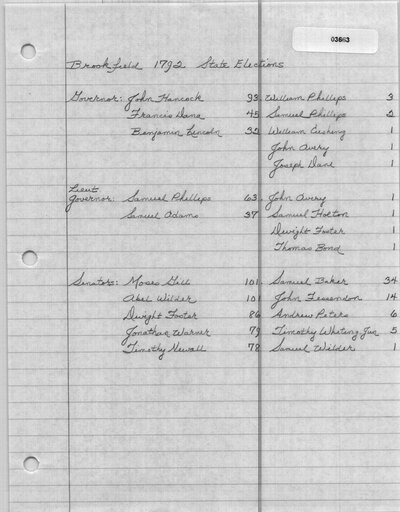 03663
Brookfield 1792 State Elections
Governor: John Hancock 93. William Phillips 3
Francis Dana 45 Samuel Phillips 2
Benjamin Lincoln 32 William Cushing 1
John Avery 1
Joseph Dane 1
Lieut
Governor: Samuel Phillips 63. John Avery 1
Samuel Adams 37 Samuel Holton 1
Dwight Foster 1
Thomas Bond 1
Senators: Moses Gill 101. Samuel Baker 34
Abel Wilder 101 John Fessendon 14
Dwight Foster 86 Andrew Peters 6
Jonathan Warner 79 Timothy Whiting, Jun 5
Timothy Newall 78 Samuel Wilder 1